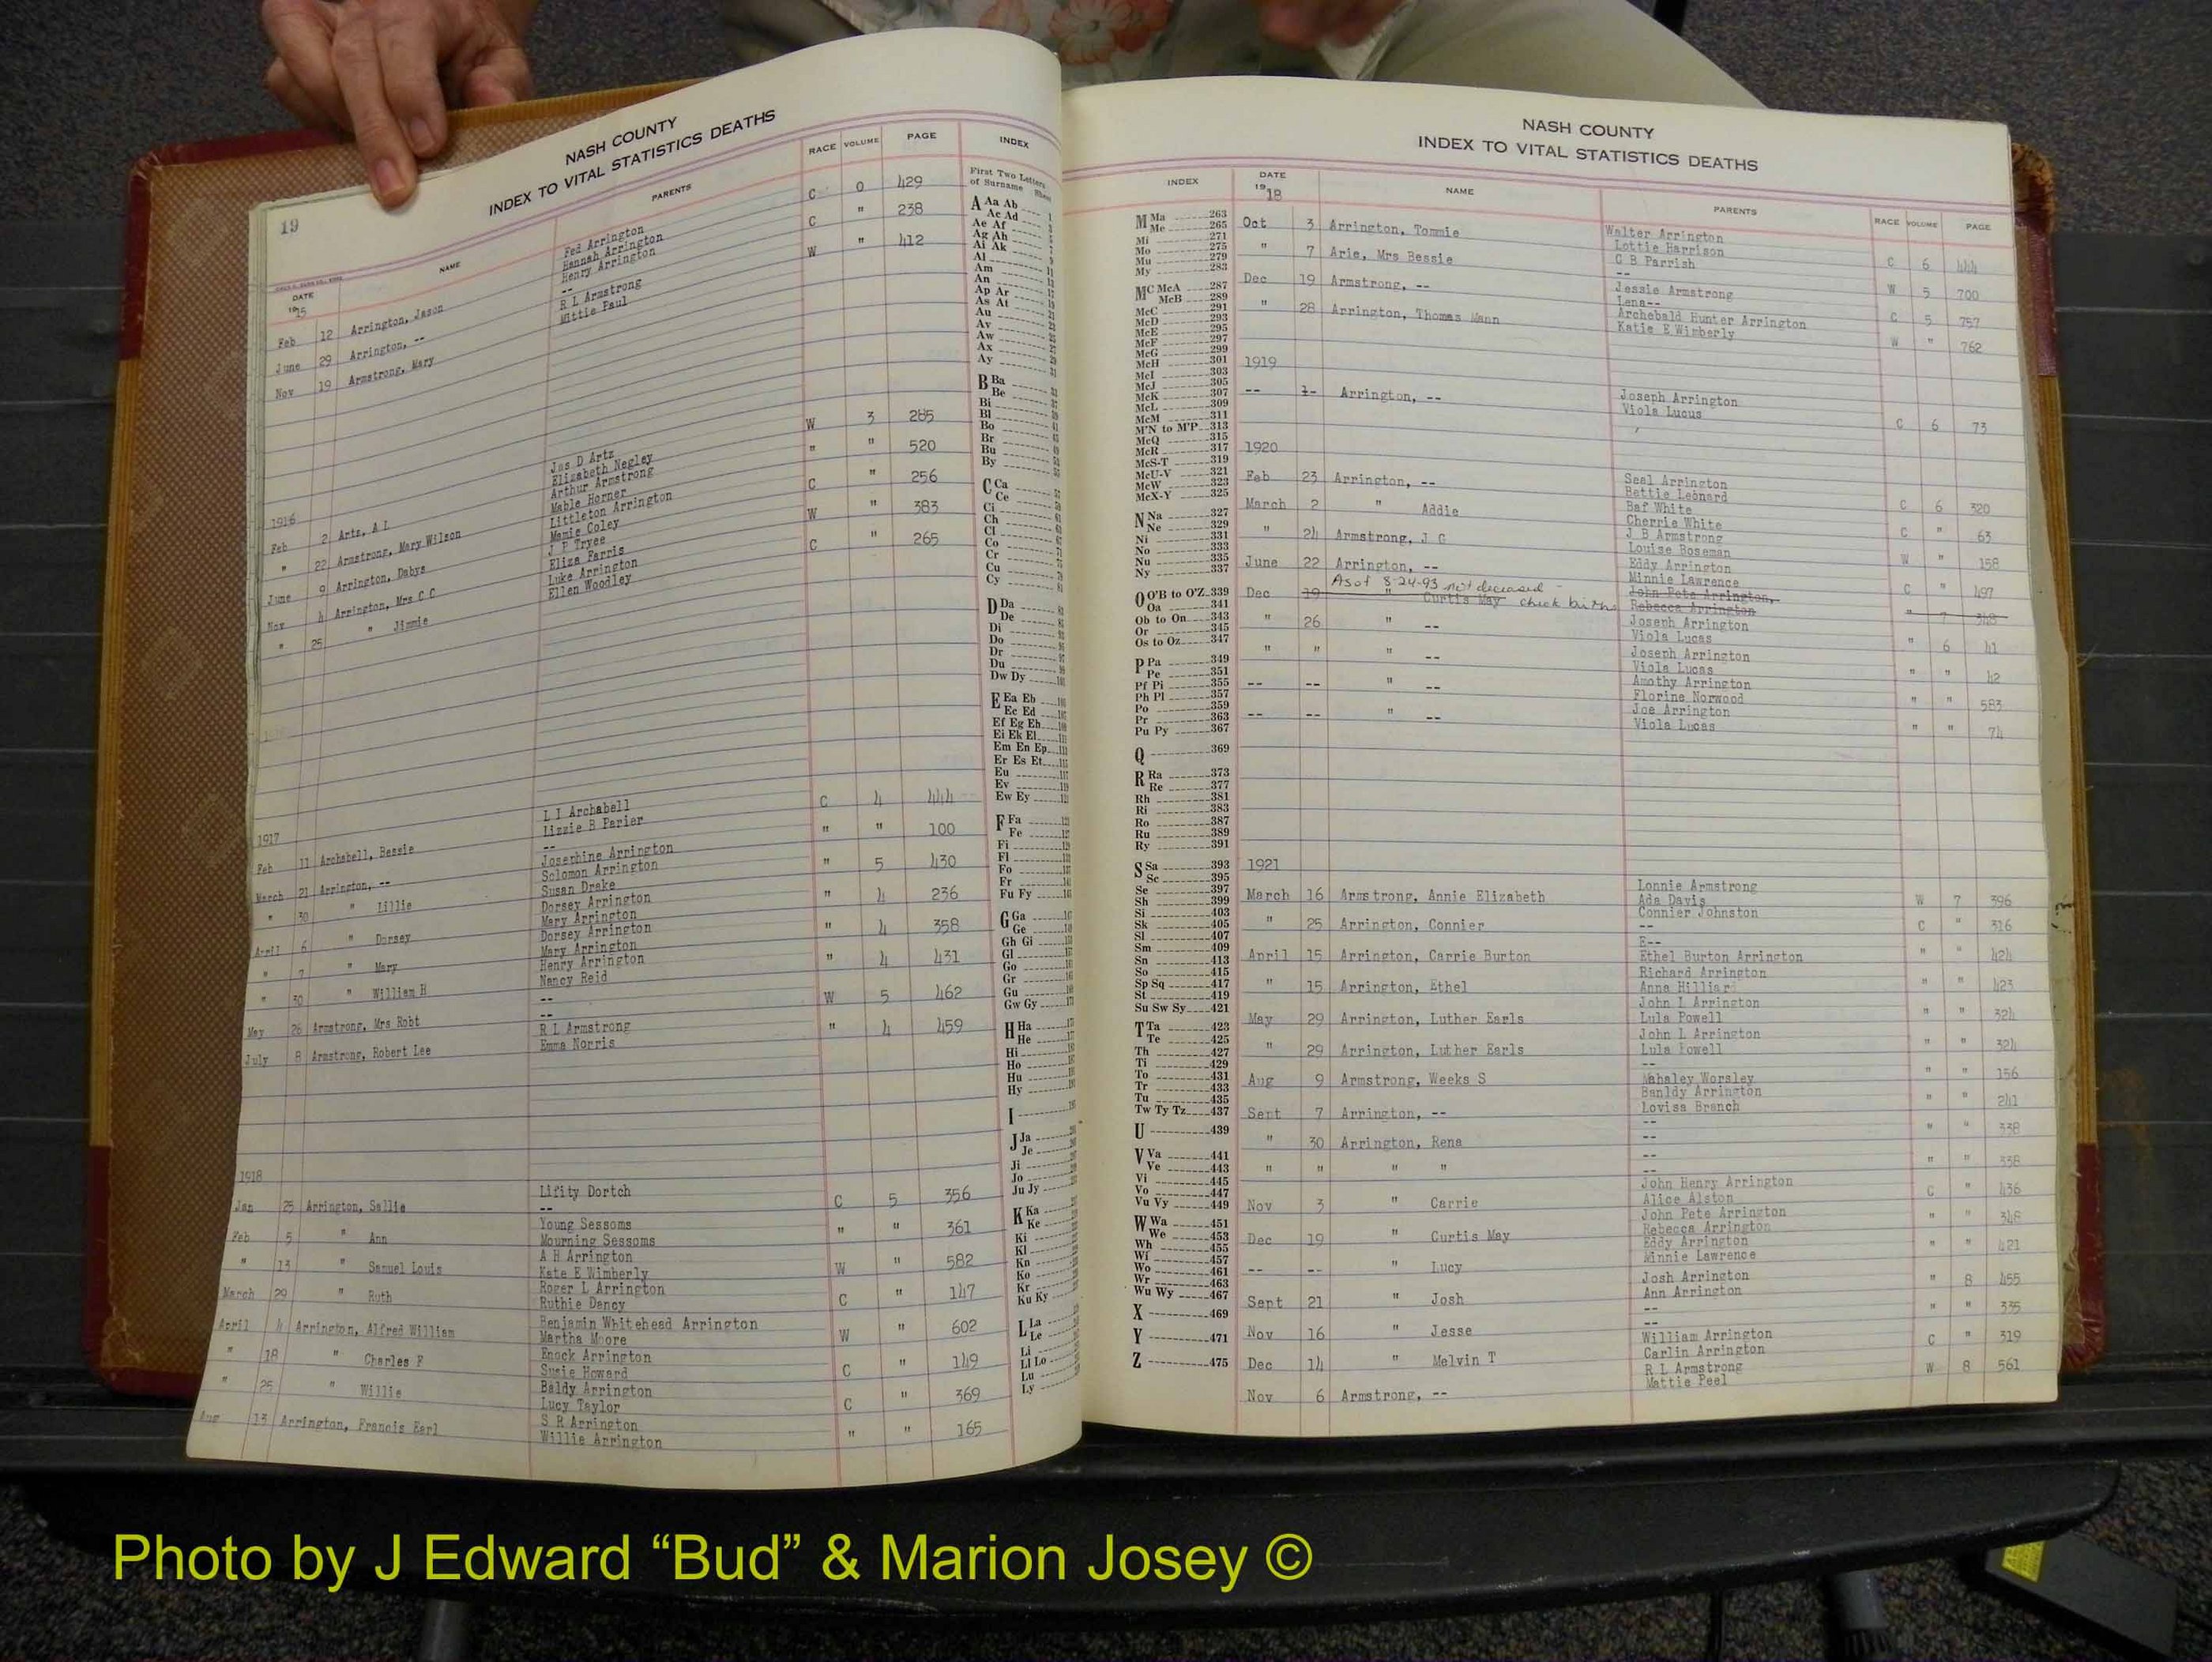 19
NASH COUNTY
INDEX TO VITAL STATISTICS DEATHS
DATE NAME PARENTS RACE VOLUME PAGE INDEX
1915
Feb 12 Arrington, Jason Fed Arrington C 0 429
Hannah Arrington
June 29 Arrington, -- Henry Arrington C " 238
--
Nov 19 Armstrong, Mary R L Armstrong W " 412
Mittie Paul
1916
Feb 2 Artz, A L Jas D Artz W 3 285
Elizabeth Negley
" 22 Armstrong, Mary Wilson Arthur Armstrong " " 520
Mable Horner
June 9 Arrington, Dabys Littleton Arrington C " 256
Mamie Coley
Nov 4 Arrington, Mrs C C J P Tryee W " 383
Eliza Farris
" 25 " Jimmie Luke Arrington C " 265
Ellen Woodley
1917
Feb 11 Archabell, Bessie L I Archabell C 4 444
Lizzie B Parier
March 21 Arrington, -- -- " " 100
Josephine Arrington
" 30 " Lillie Solomon Arrington " 5 430
Susan Drake
April 6 " Dorsey Dorsey Arrington " 4 236
Mary Arrington
" 7 " Mary Dorsey Arrington " 4 358
Mary Arrington
" 30 " William H Henry Arrington " 4 431
Nancy Reid
May 28 Armstrong, Mrs Robt -- W 5 462
--
July 8 Armstrong, Robert Lee R L Armstrong " 4 459
Emma Norris
1918
Jan 25 Arrington, Sallie Lifity Dortch C 5 356
--
Feb 5 " Ann Young Sessoms " " 361
Mourning Sessoms
" 13 " Samuel Louis A H Arrington W " 582
Kate E Wimberly
March 29 " Ruth Roger L Arrington C " 147
Ruthie Dancy
April 4 Arrington, Alfred William Benjamin Whitehead Arrington W " 602
Martha Moore
" 18 " Charles F Enock Arrington C " 149
Susie Howard
" 25 " Willie Baldy Arrington C " 369
Lucy Taylor
Aug 13 Arrington, Francis Earl S R Arrington " " 165
Willie Arrington
First Two Letters
of Surname
A Aa Ab 1
Ac Ad
Ae Af
Ag Ah
Ai Ak
Al
Am
An
Ap Ar
As At
Au
Av
Aw
Ax
Ay
B Ba
Be
Bi
Bl
Bo
Br
Bu
By
C Ca
Ce
Ci
Ch
Cl
Co
Cr
Cu
Cy
D Da
De
Di
Do
Dr
Du
Dw Dy
E Ea Eb
Ec Ed
Ef Eg Eh
Ei Ek El
Em En Ep
Er Es Et
Eu
Ev
Ew Ey
F Fa
Fe
Fi
Fl
Fo
Fr
Fu Fy
G Ga
Ge
Gh Gi
Gl
Go
Gr
Gu
Gw Gy
H Ha
He
Hi
Ho
Hu
Hy
I
J Ja
Je
Ji
Jo
Ju Jy
K Ka
Ke
Ki
Kl
Kn
Ko
Kr
Ku Ky
L La
Le
Li
Ll Lo
Lu
Ly
NASH COUNTY
INDEX TO VITAL STATISTICS DEATHS
INDEX DATE NAME PARENTS RACE VOLUME PAGE
M Ma 263
Me 265
Mi 271
Mo 275
Mu 279
My 283
Mc McA 287
McB 289
McC 291
McD 293
McE 295
McF 297
McG 299
McH 301
McI 303
McJ 305
McK 307
McL 309
McM 311
M'N to M'P 313
McQ 315
McR 317
McS-T 319
McU-V 321
McW 323
McX-Y 325
N Na 327
Ne 329
Ni 331
No 333
Nu 335
Ny 337
O O'B to O'Z 339
Oa 341
Ob to On 343
Or 345
Os to Oz 347
P Pa 349
Pe 351
Pf Pi 355
Ph Pl 357
Po 359
Pr 363
Pu Py 367
Q 369
R Ra 373
Re 377
Rh 381
Ri 383
Ro 387
Ru 389
Ry 391
S Sa 393
Sc 395
Se 397
Sh 399
Si 403
Sk 405
Sl 407
Sm 409
Sn 413
So 415
Sp Sq 417
St 419
Su Sw Sy 421
T Ta 423
Te 425
Th 427
Ti 429
To 431
Tr 433
Tu 435
Tw Ty Tz 437
U 439
V Va 441
Ve 443
Vi 445
Vo 447
Vu Vy 449
W Wa 451
We 453
Wh 455
Wi 457
Wo 461
Wr 463
Wu Wy 467
X 469
Y 471
Z 475
1918
Oct 3 Arrington, Tommie Walter Arrington C 6 444
Lottie Harrison
" 7 Arie, Mrs Bessie C B Parrish W 5 700
--
Dec 19 Armstrong, -- Jessie Armstrong C 5 757
Lena--
" 28 Arrington, Thomas Mann Archebald Hunter Arrington W " 762
Katie E Wimberly
1919
-- 1- Arrington, -- Joseph Arrington C 6 73
Viola Lucus
1920
Feb 23 Arrington, -- Seal Arrington C 6 320
Bettie Leonard
March 2 " Addie Baf White C " 63
Cherrie White
" 24 Armstrong, J G J B Armstrong W " 158
Louise Boseman
June 22 Arrington, -- Eddy Arrington C " 497
Minnie Lawrence
As of 8-24-93 not deceased -
Dec 19 " Curtis May check births John Pete Arrington, " 7 348
Rebecca Arrington
" 26 " -- Joseph Arrington " 6 41
Viola Lucas
" " " -- Joseph Arrington " " 42
Viola Lucas
-- -- " -- Amothy Arrington " " 583
Florine Norwood
-- -- " -- Joe Arrington " " 74
Viola Lucas
1921
March 16 Armstrong, Annie Elizabeth Lonnie Armstrong W 7 396
Ada Davis
" 25 Arrington, Connier Connier Johnston C " 316
--
April 15 Arrington, Carrie Burton E-- " " 424
Ethel Burton Arrington
" 15 Arrington, Ethel Richard Arrington " " 423
Anna Hilliar
May 29 Arrington, Luther Earls John L Arrington " " 324
Lula Powell
" 29 Arrington, Luther Earls John L Arrington " " 324
Lula Powell
Aug 9 Armstrong, Weeks S -- " " 156
Mahaley Worsley
Sept 7 Arrington, -- Banldy Arrington " " 241
Lovisa Branch
" 30 Arrington, Rena -- " " 338
--
" " " " -- " " 338
--
Nov 3 " Carrie John Henry Arrington C " 436
Alice Alston
Dec 19 " Curtis May John Pete Arrington " " 348
Rebecca Arrington
-- -- " Lucy Eddy Arrington " " 421
Minnie Lawrence
Sept 21 " Josh Josh Arrington " 8 455
Ann Arrington
Nov 16 " Jesse -- " " 335
--
Dec 14 " Melvin T William Arrington C " 319
Carlin Arrington
Nov 6 Armstrong, -- R L Armstrong W 8 561
Mattie Peel
Photo by J Edward “Bud” & Marion Josey ©